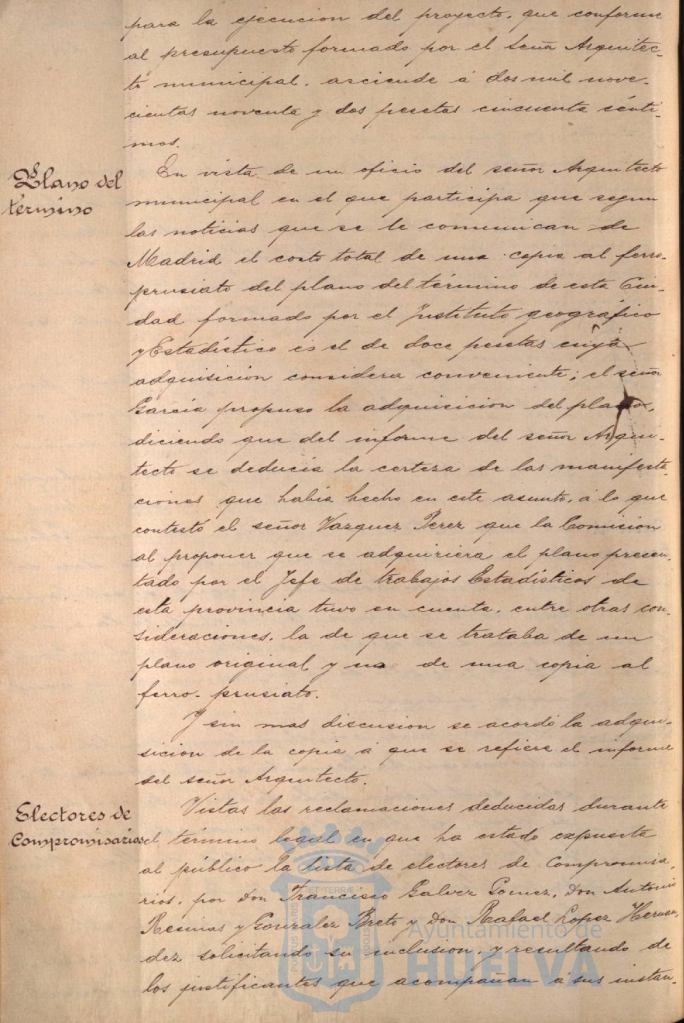 para la ejecucion del proyecto, que conforme
al presupuesto formado por el Señor Arquitec-
to municipal, asciende á dos mil nove-
cientas noventa y dos pesetas cincuenta cénti-
mos.
Plano del
término
En vista de un oficio del señor Arquitecto
municipal en el que participa que segun
las noticias que se le comunican de
Madrid el costo total de una copia al ferro-
prusiato del plano del término de esta Ciu-
dad formado por el Instituto geográfico
y Estadístico es el de doce pesetas cuya
adquisición considera conveniente; el señor
García propuso la adquisicion del plano,
diciendo que del informe del señor Arqui-
tecto se deducia la certeza de las manifesta-
ciones que habia hecho en este asunto, á lo que
contestó el señor Vazquez Perez que la Comision
al proponer que se adquiriera el plano presen-
tado por el Jefe de trabajos Estadísticos de
esta provincia tuvo en cuenta, entre otras con-
sideraciones, la de que se trataba de un
plano original y no de una copia al
ferro-prusiato.
Y sin mas discusion se acordó la adqui-
sicion de la copia á que se refiere el informe
del señor Arquitecto.
Electores de
Compromisarios
Vistas las reclamaciones deducidas durante
el término legal en que ha estado expuesta
al público la lista de electores de Compromisa-
rios, por don Francisco Galvez Gomez, Don Antonio
y Gonzalez y don Rafael Lopez Hernan-
dez solicitando su inclusion, y resultando de
los justificantes que acompañan á sus instan-
Ayuntamiento de
HUELVA